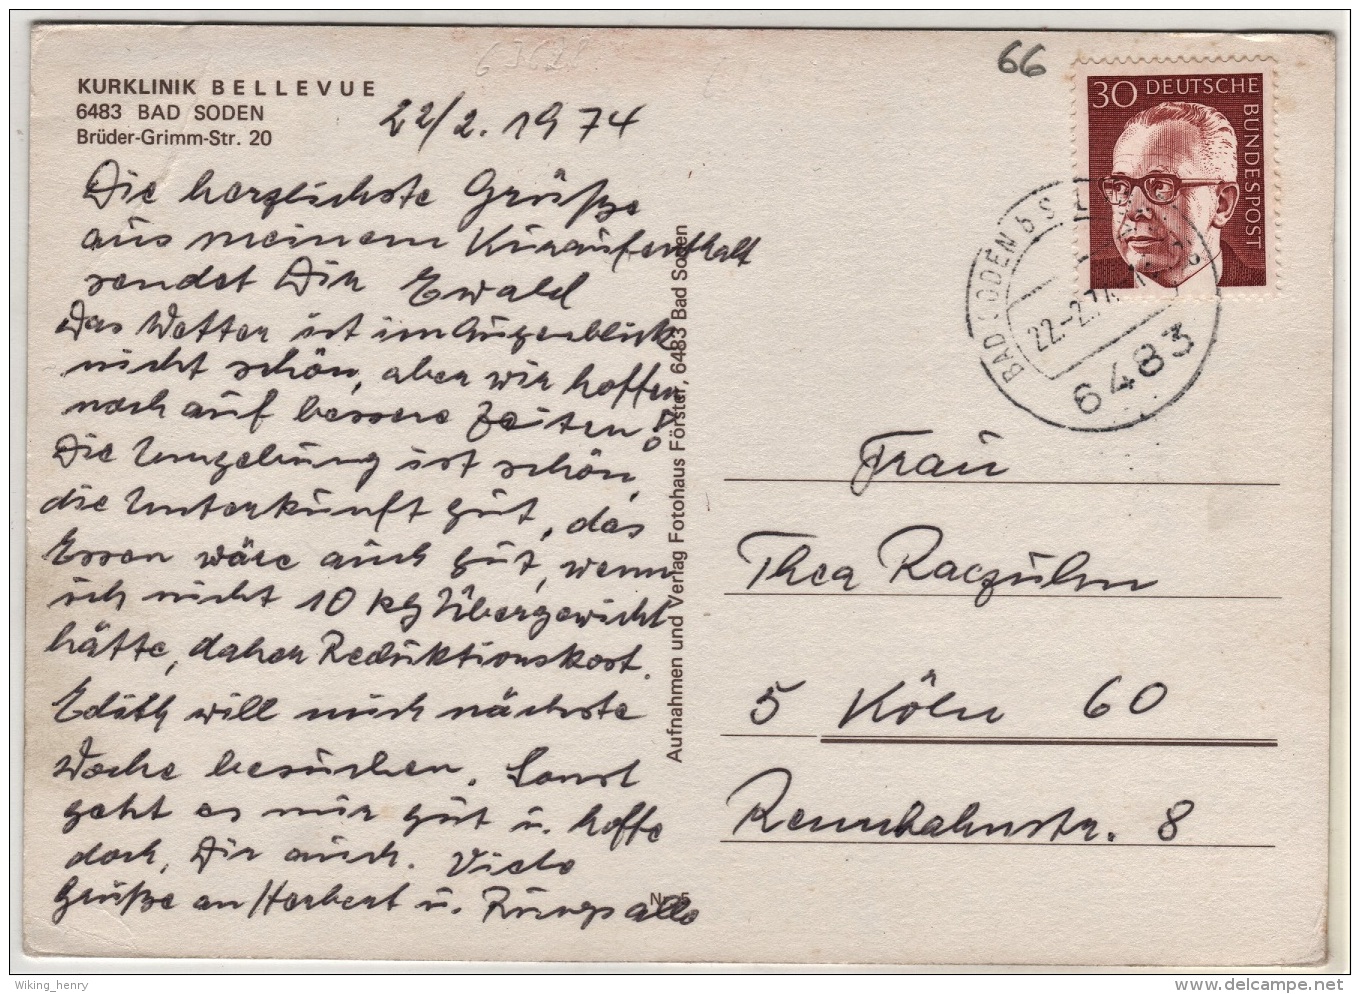 KURKLINIK BELLEVUE
6483 BAD SODEN
Brüder-Grimm-Str. 20
22/2. 1974
Die herzlichste Grüße
aus meinem Kuraufenthalt
sendet Dir Ewald
Das Wetter ist im Augenblick
nicht schön, aber wir hoffen
noch auf bessere Zeiten!
Die Umgebung ist schön,
die Unterkunft gut, das
Essen wäre auch gut, wenn
ich nicht 10 kg Übergewicht
hätte, daher Reduktionskost.
Edith will mich nächste
Woche besuchen. Sonst
geht es mir gut u. hoffe
doch, Dir auch. Viele
Grüße an Herbert u.
Aufnahmen und Verlag Fotohaus Förster, 6483 Bad Soden
66
30 DEUTSCHE
BUNDESPOST
BAD SODEN b S
22.-2.74
6483
Frau
Thea
5 Köln 60
Rennbahnstr. 8
Wiking_henry
delcampe.net